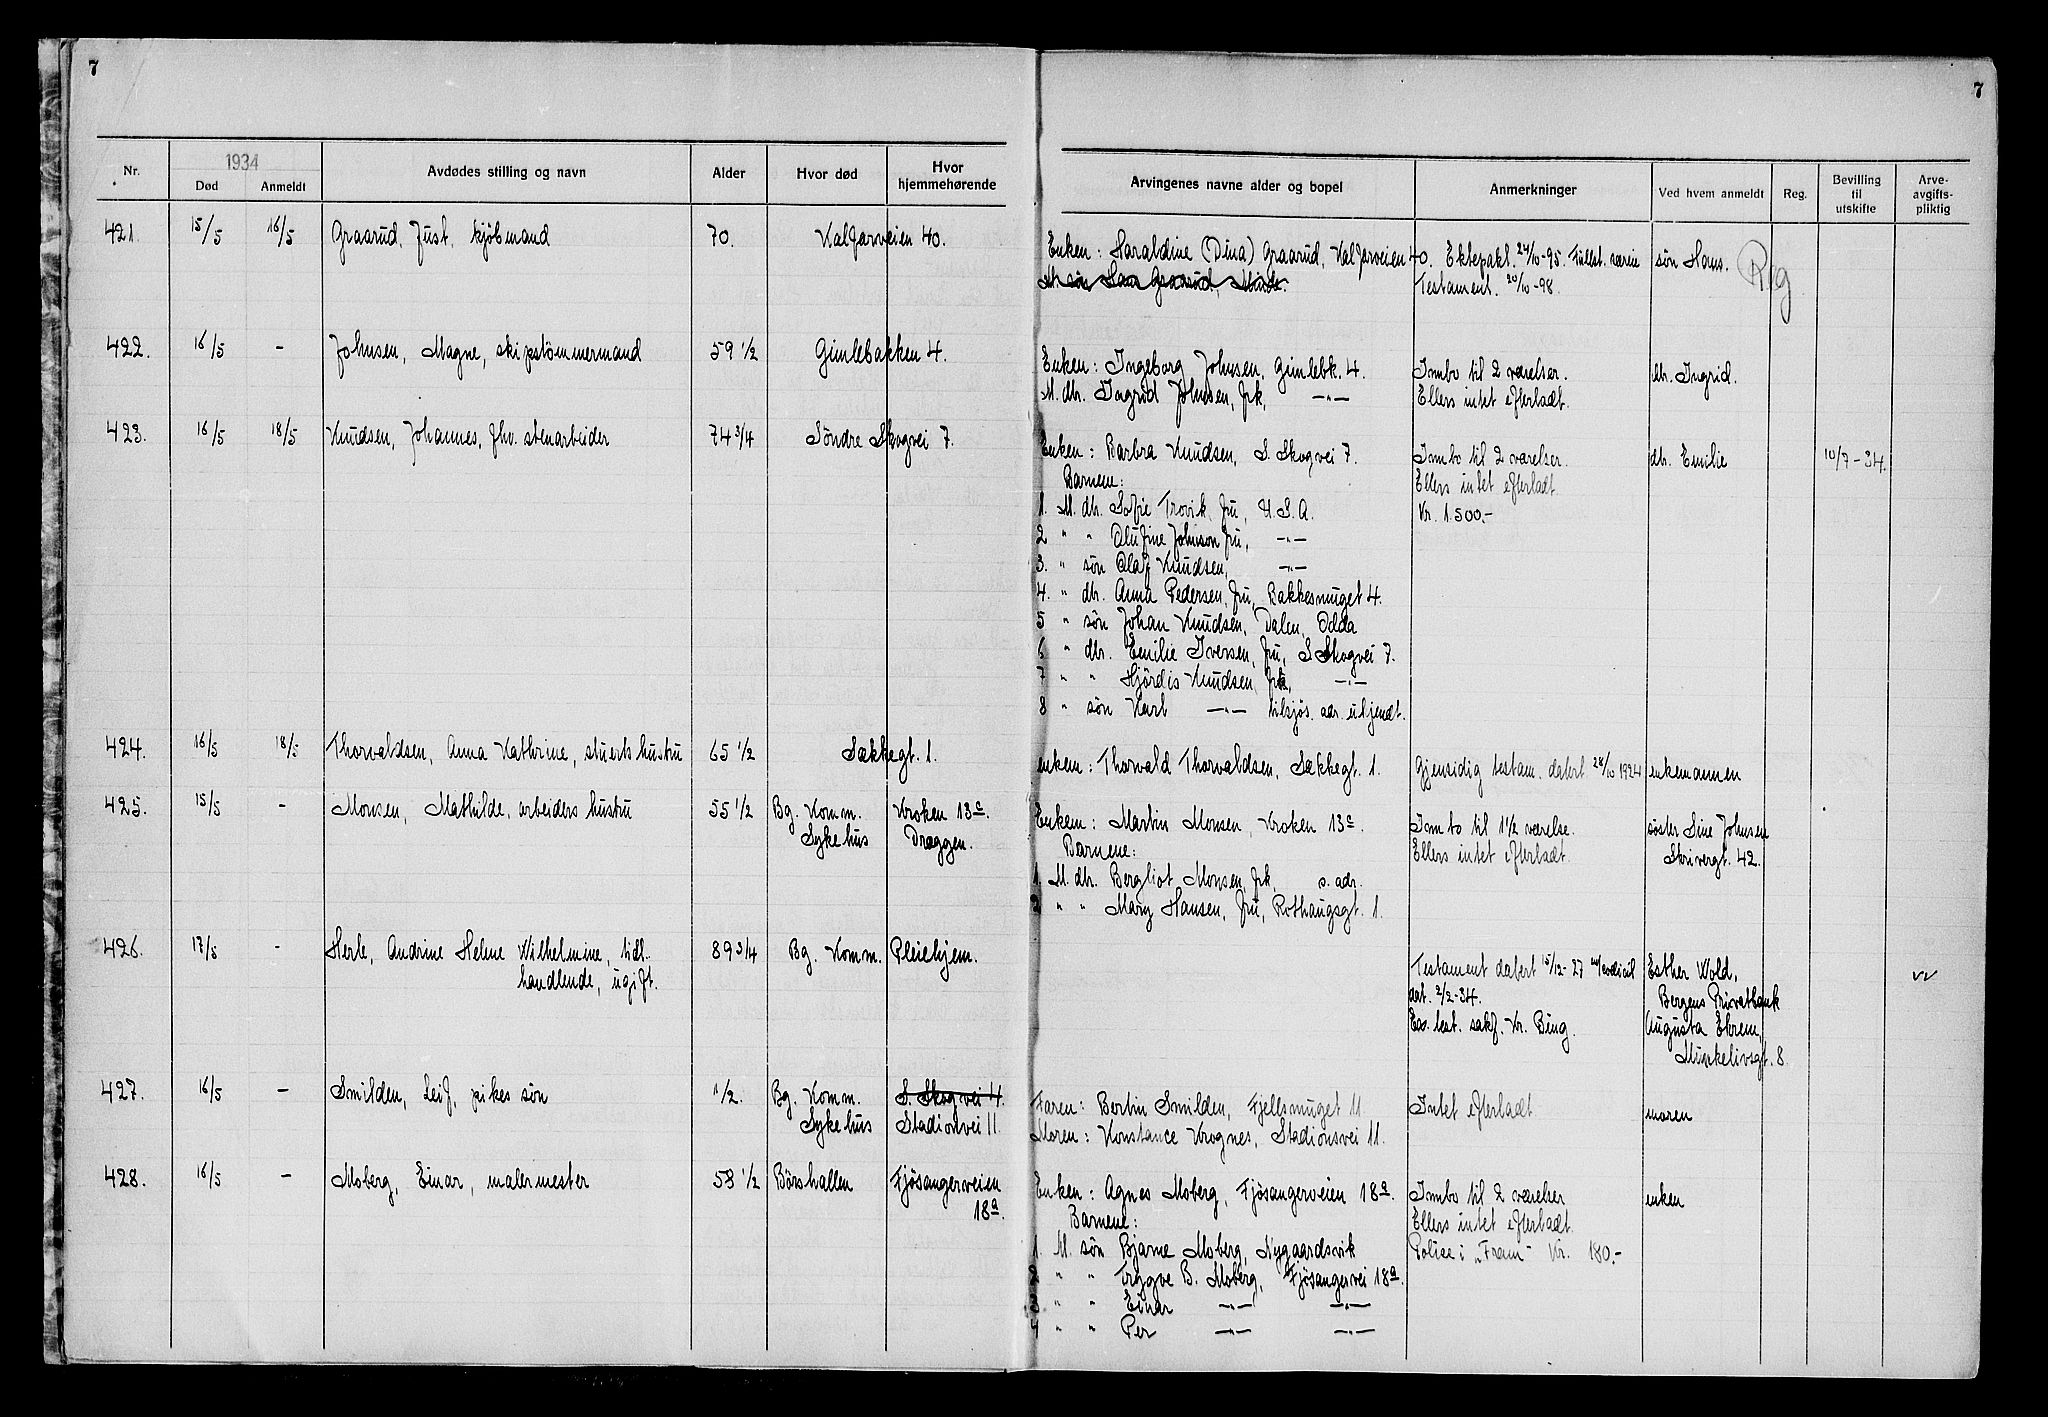 7
7
Nr.
1934
Død
Anmeldt
Avdødes stilling og navn
Alder
Hvor død
Hvor
hjemmehørende
Arvingenes navne alder og bopel
Anmerkninger
Ved hvem anmeldt
Reg.
Bevilling
til
utskifte
Arve-
avgifts-
pliktig
421. 15/5 16/5 Graarud, Just, kjøbmand 70. Kalfarveien 40.
Enken: Haraldine (Dina) Graarud, Kalfarveien 40. Ektepakt. 24/10-95. Fullst. særeie søn Hans. Reg
M. søn Hans Graarud, Minde. Testament. 20/10-98.
422. 16/5 - Johnsen, Magne, skipstømmermand 59 1/2 Gimlebakken 4.
Enken: Ingeborg Johnsen, Gimlebk. 4. Innbo til 2 værelser. dtr. Ingrid.
M. dtr. Ingrid Johnsen, frk, -"- Ellers intet efterladt.
423. 16/5 18/5 Knudsen, Johannes, fhv. stenarbeider 74 3/4 Søndre Skogvei 7.
Enken: Barbra Knudsen, S. Skogvei 7. Innbo til 2 værelser. dtr. Emilie 10/7-34.
Barnene: Ellers intet efterladt
1. M. dtr. Sofie Trovik, fru, U.S.A. Kr. 1500.-
2 " " Olufine Johnson fru, -"-
3. " søn Olaf Knudsen, -"-
4. " dtr. Anna Pedersen, fru, Bakkesmuget 4.
5 " søn Johan Knudsen, Dalen, Odda
6 " dtr. Emilie Iversen, fru, S Skogvei 7.
7 " " Hjørdis Knudsen frk, -"-
8 " søn Karl -"- tilsjøs. adr. ukjendt.
424. 16/5 18/5 Thorvaldsen, Anna Kathrine, stuerts hustru 65 1/2 Sækkegt. 1.
enkem: Thorvald Thorvaldsen, Sækkegt. 1. Gjensidig testam. datert 28/10 1924 enkemannen
425. 15/5 - Monsen, Mathilde, arbeiders hustru 55 1/2 Bg. Komm. Kroken 13c.
Sykehus Dræggen.
Enkem: Martin Monsen, Kroken 13c. Innbo til 1 1/2 værelse. søster Sine Johnsen
Barnene: Ellers intet efterladt. Skivergt. 42.
1. M. dtr. Bergliot Monsen, frk, s. adr.
2 " " Mary Hansen, fru, Rothaugsgt. 1.
426. 17/5 - Herle, Andrine Helene Wilhelmine, tidl. 89 3/4 Bg. Komm. Pleiehjem.
handlende, ugift.
Testament datert 15/12-27 m/codicil Esther Wold,
dat. 2/2-34. Bergens Privatbank
Ex. test. sakf. Kr. Bing. Augusta Ekrem,
Munkelivsgt. 8
427. 16/5 - Smilden, Leif, pikes søn 1/2. Bg. Komm. S. Skogvei 4.
Sykehus Stadionvei 11.
Faren: Bertin Smilden, Fjellsmuget 11 Intet efterladt moren
Moren: Konstance Krognes, Stadionsvei 11.
428. 16/5 - Moberg, Einar, malermester 53 1/2 Børshallen Fjøsangerveien
18a.
Enken: Agnes Moberg, Fjøsangerveien 18a. Innbo til 2 værelser enken
Barnene: Ellers intet efterladt.
1. M. søn Bjarne Moberg, Nygaardsvik Polise i "Fram" Kr. 180.-
2 " " Trygve B. Moberg, Fjøsangervei 18a.
3 " " Einar -"- -"-
4 " " Per -"- -"-